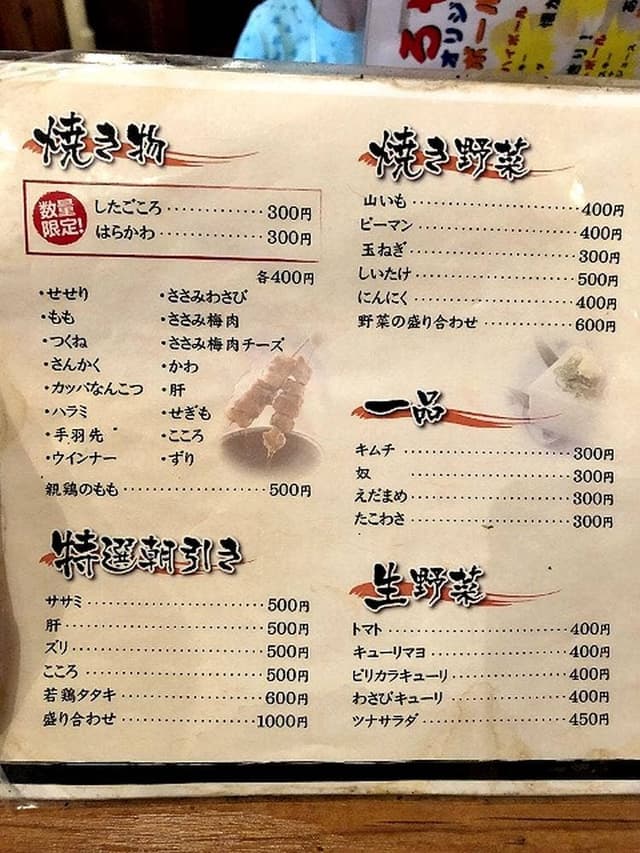 焼き物
数量限定!
したごころ 300円
はらかわ 300円
各400円
・せせり
・もも
・つくね
・さんかく
・カッパなんこつ
・ハラミ
・手羽先
・ウインナー
・ささみわさび
・ささみ梅肉
・ささみ梅肉チーズ
・かわ
・肝
・せぎも
・こころ
・ずり
親鶏のもも 500円
特選朝引き
ササミ 500円
肝 500円
ズリ 500円
こころ 500円
若鶏タタキ 600円
盛り合わせ 1000円
焼き野菜
山いも 400円
ピーマン 400円
玉ねぎ 300円
しいたけ 500円
にんにく 400円
野菜の盛り合わせ 600円
一品
キムチ 300円
奴 300円
えだまめ 300円
たこわさ 300円
生野菜
トマト 400円
キューリマヨ 400円
ピリカラキューリ 400円
わさびキューリ 400円
ツナサラダ 450円